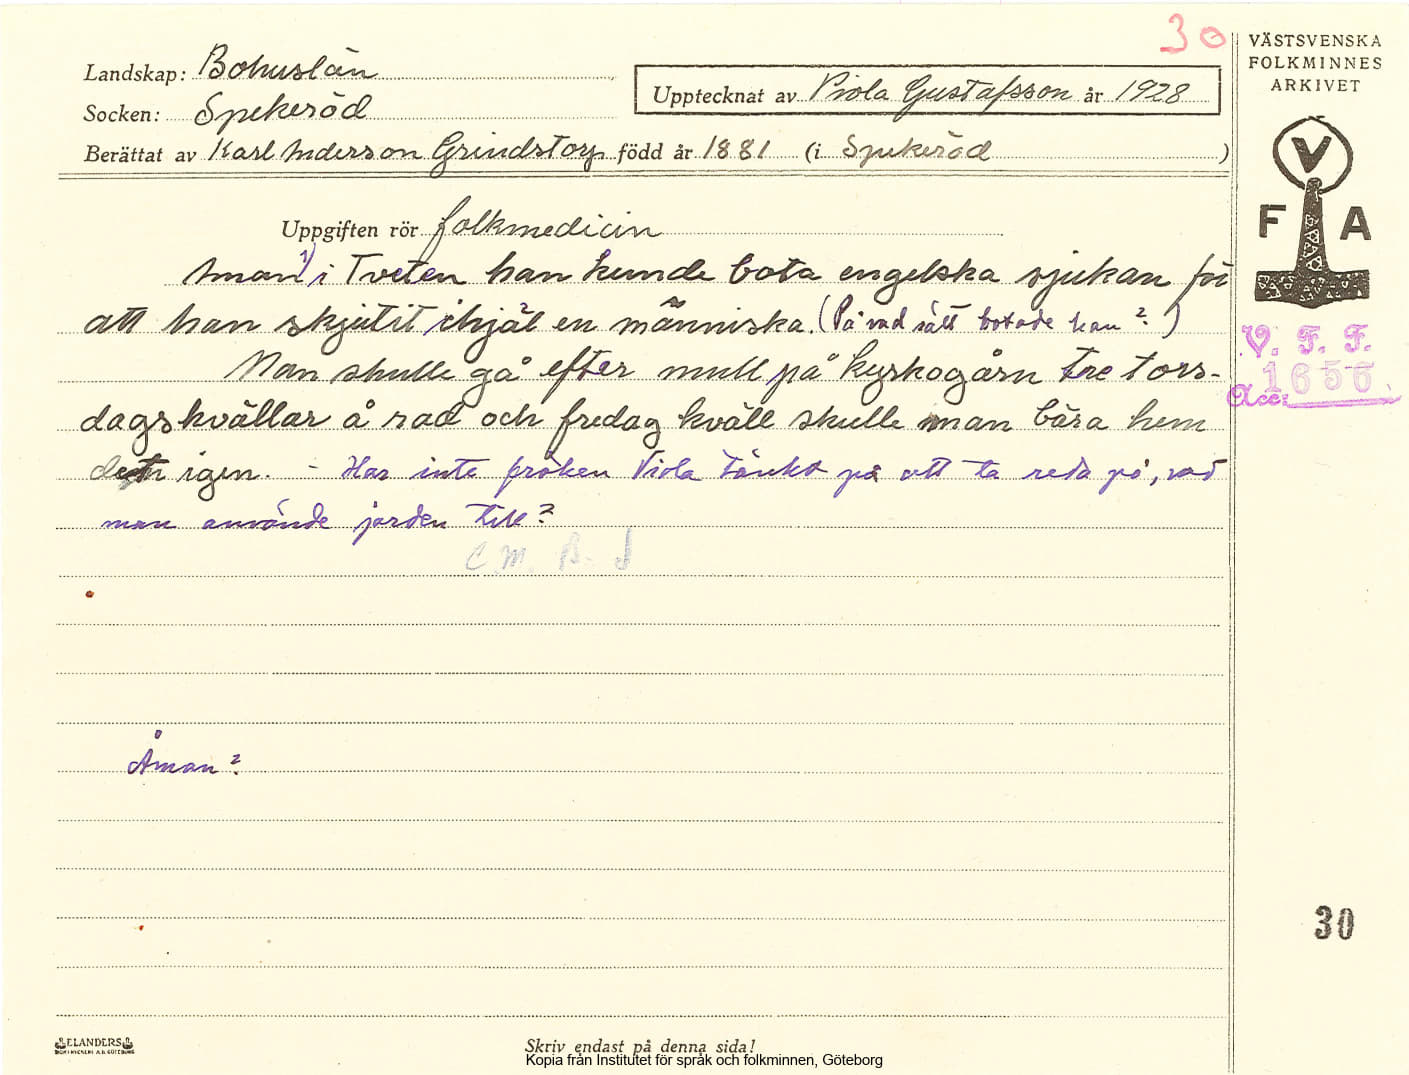 30
VÄSTSVENSKA
FOLKMINNES
ARKIVET
Landskap: Bohuslän
Socken: Spekeröd
Upptecknat av Viola Gustafsson år 1928
Berättat av Karl Anderson Grindstorp född år 1881 (i Spekeröd )
V
F A
Uppgiften rör folkmedicin
Aman 1) i Tveten han kunde bota engelska sjukan för
att han skjutit ihjäl en människa. (På vad sätt botade han? )
Man skulle gå efter mull på kyrkogårn tre tors-
dagskvällar å rad och fredag kväll skulle man bära hem
den igen. - Har inte fröken Viola tänkt på att ta reda på, vad
man använde jorden till?
C. M. B. S
V. F. F.
Acc: 1656
Åman?
30
ELANDERS
BOKTRYCKERI A.B. GÖTEBORG
Skriv endast på denna sida!
Kopia från Institutet för språk och folkminnen, Göteborg